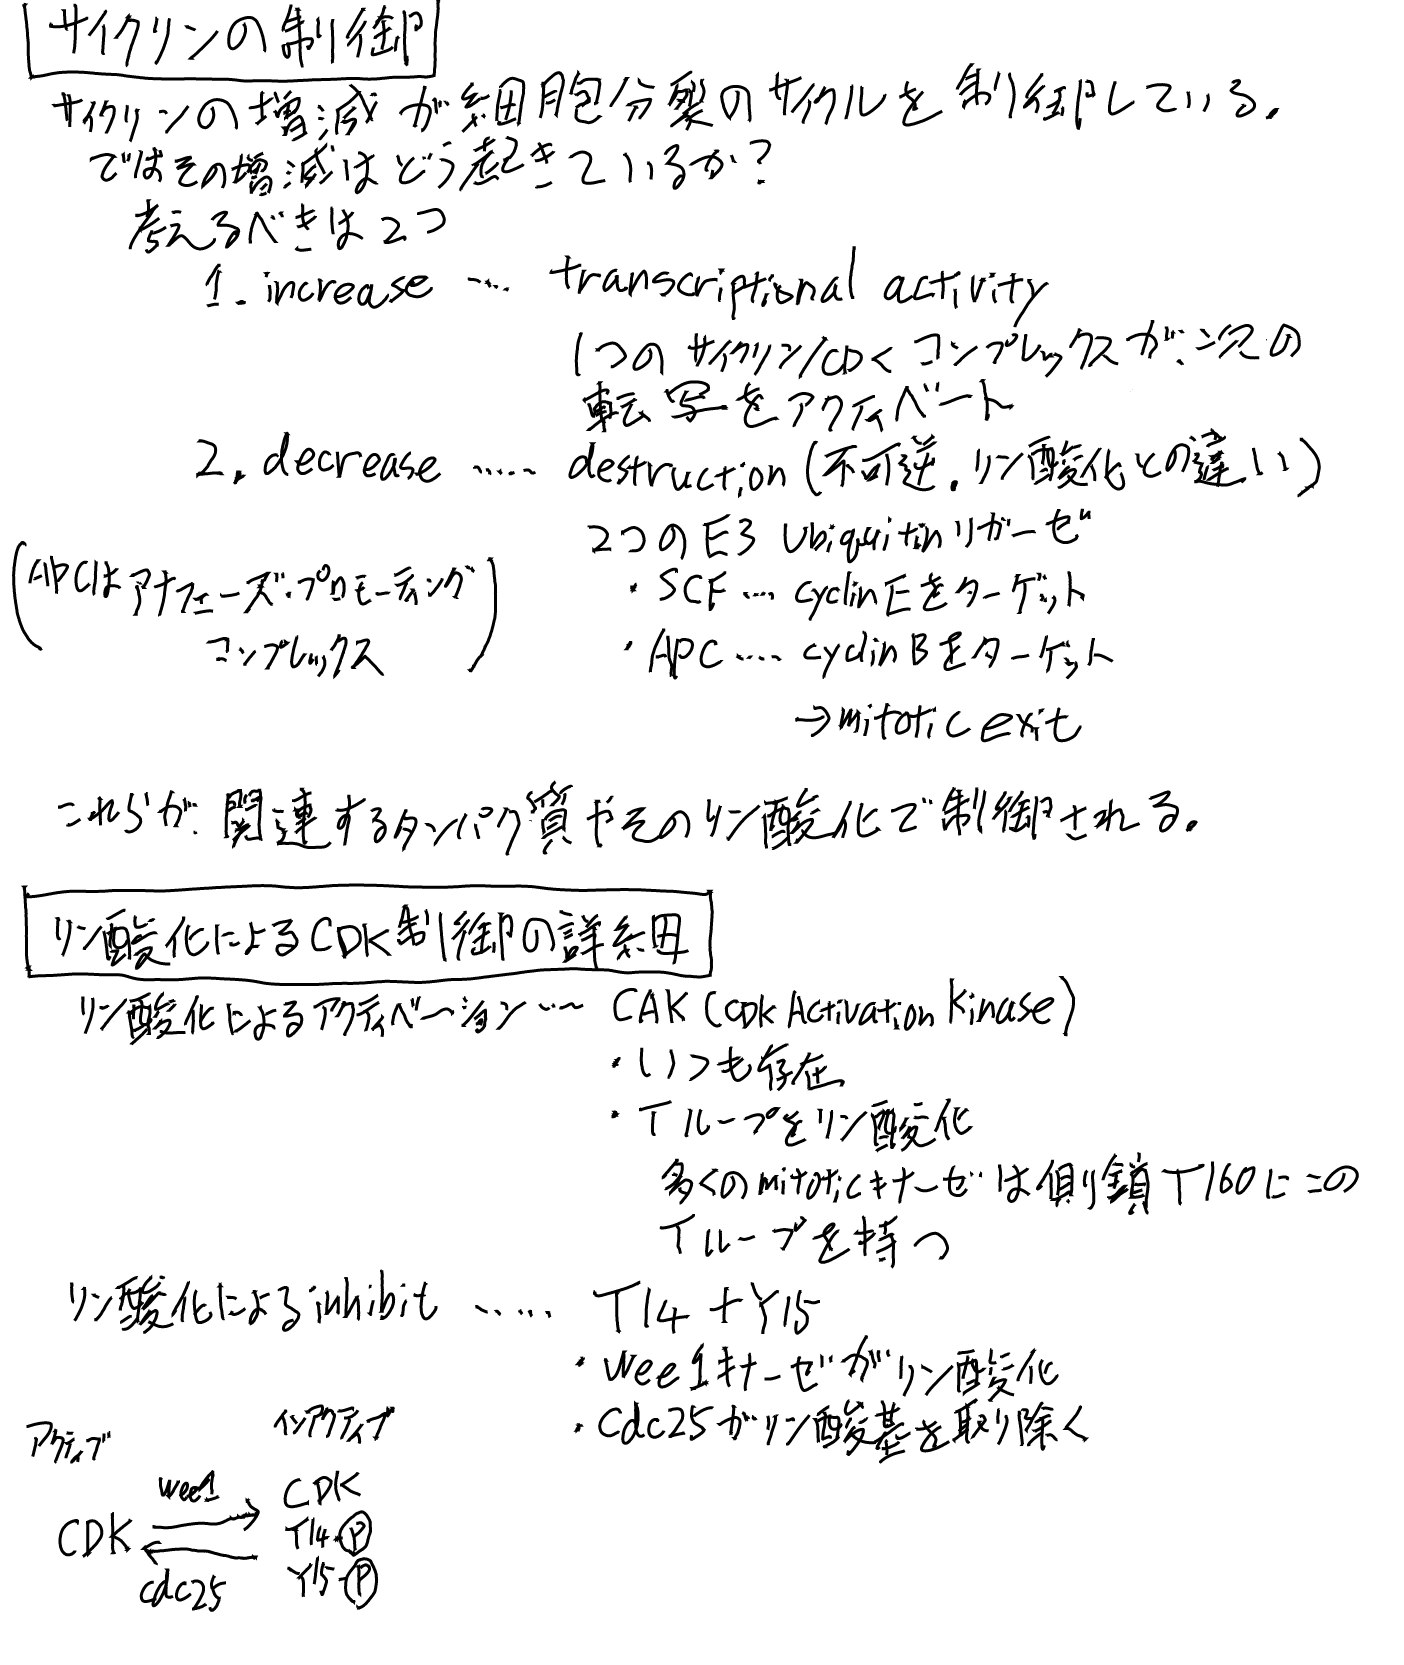 サイクリンの制御
サイクリンの増減が細胞分裂のサイクルを制御している.
ではその増減はどう起きているか?
考えるべきは2つ
1. increase … transcriptional activity
1つのサイクリン/CDKコンプレックスが、次の
転写をアクティベート
2. decrease ..... destruction (不可逆. リン酸化との違い)
2つのE3 Ubiquitinリガーゼ
・SCF .... cyclin Eをターゲット
・APC .... cyclin Bをターゲット
→ mitotic exit
(APCはアナフェーズ・プロモーティング
コンプレックス)
これらが、関連するタンパク質やそのリン酸化で制御される.
リン酸化によるCDK制御の詳細
リン酸化によるアクティベーション … CAK (CDK Activation Kinase)
・いつも存在
・Tループをリン酸化
多くのmitoticキナーゼは側鎖T160にこの
Tループを持つ
リン酸化によるinhibit ..... T14 + Y15
・wee1キナーゼがリン酸化
・cdc25がリン酸基を取り除く
アクティブ インアクティブ
wee1
CDK CDK
T14-P
Y15-P
cdc25